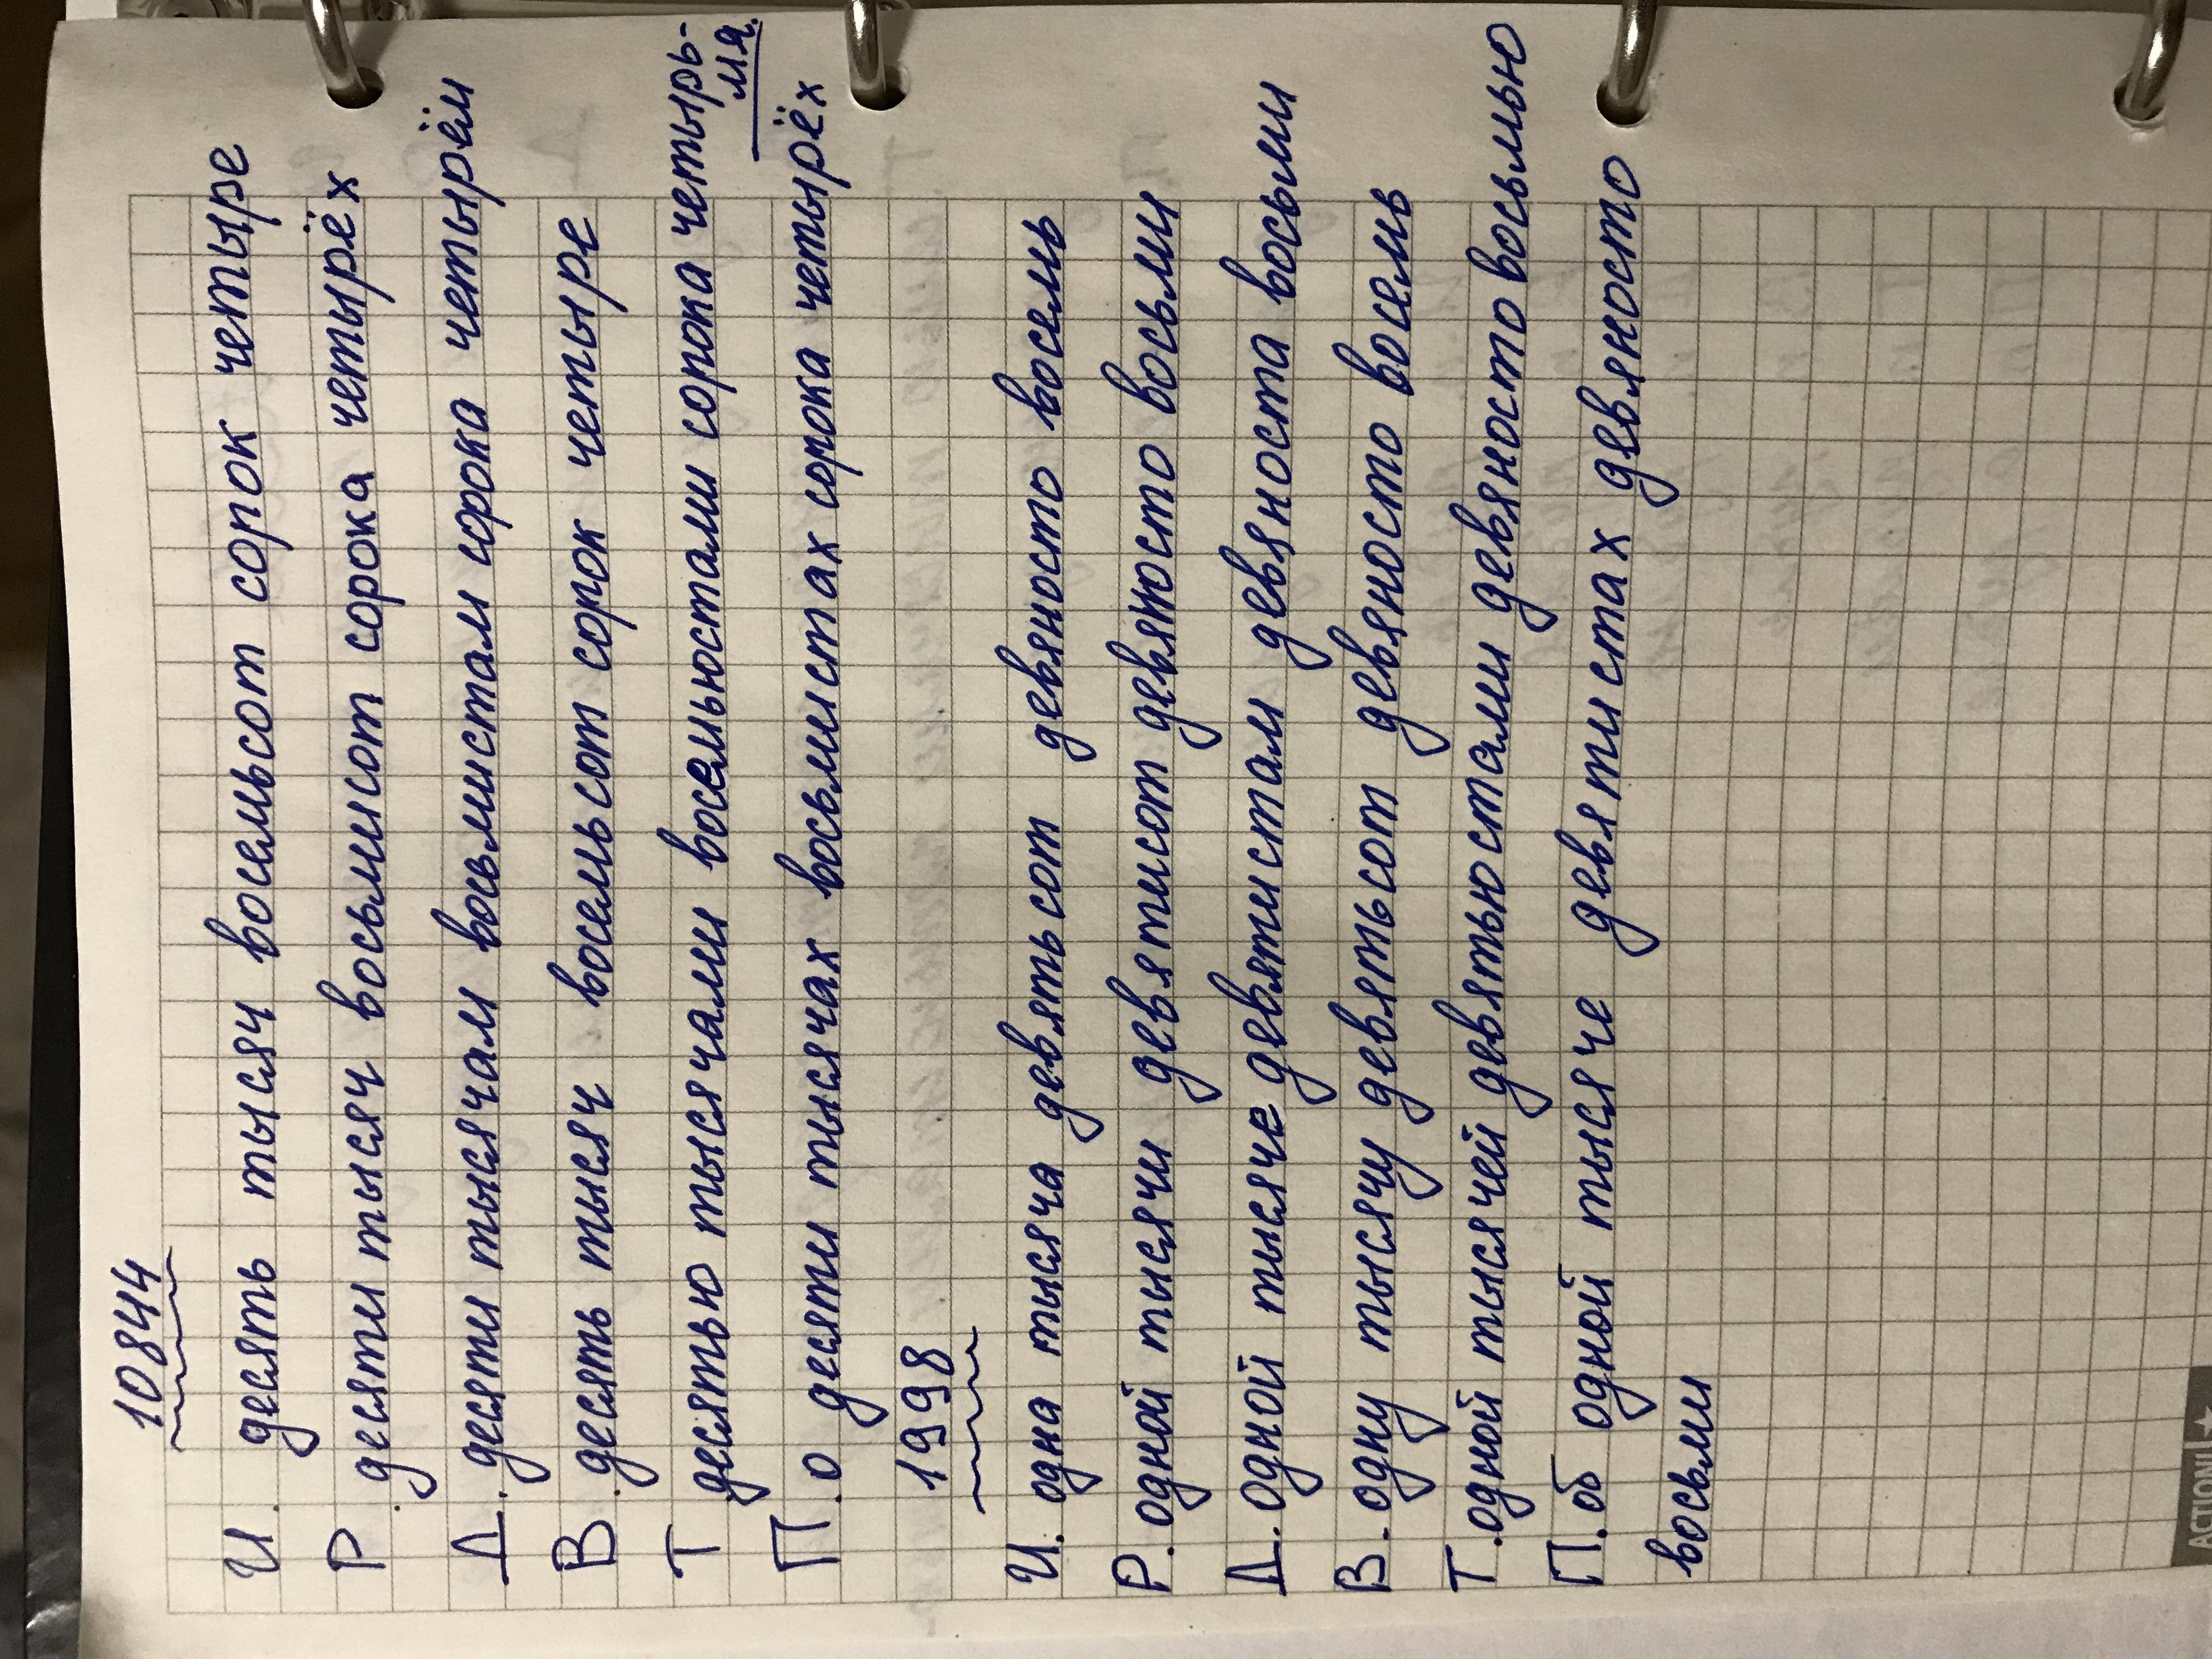 10844
И. десять тысяч восемьсот сорок четыре
Р. десяти тысяч восьмисот сорока четырёх
Д. десяти тысячам восьмистам сорока четырём
В. десять тысяч восемьсот сорок четыре
Т десятью тысячами восемьюстами сорока четырь-
мя.
П. о десяти тысячах восьмистах сорока четырёх
1998
И. одна тысяча девятьсот девяносто восемь
Р. одной тысячи девятисот девяносто восьми
Д. одной тысяче девятистам девяноста восьми
В. одну тысячу девятьсот девяносто восемь
Т. одной тысячей девятьюстами девяносто восьмью
П. об одной тысяче девятистах девяносто
восьми
ACTION!